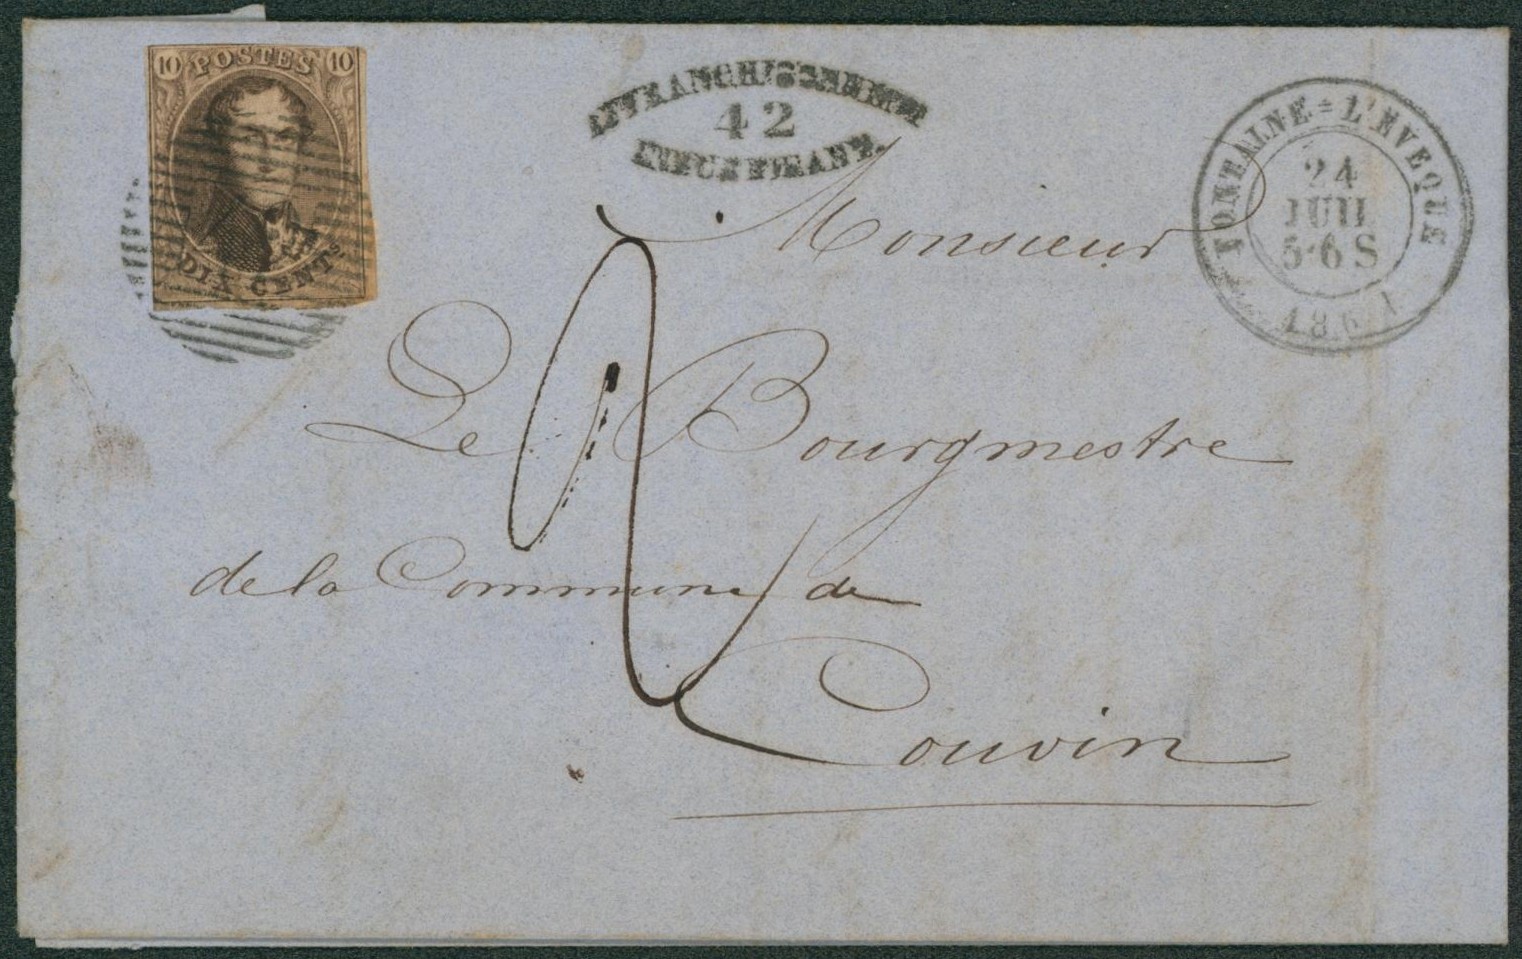 10 POSTES 10
DIX CENTS
AFFRANCHISSEMENT
42
INSUFFISANT.
FONTAINE=L'EVEQUE
24
JUIL
5·6S
1861
2
Monsieur
Le Bourgmestre
de la Commune de
Couvin